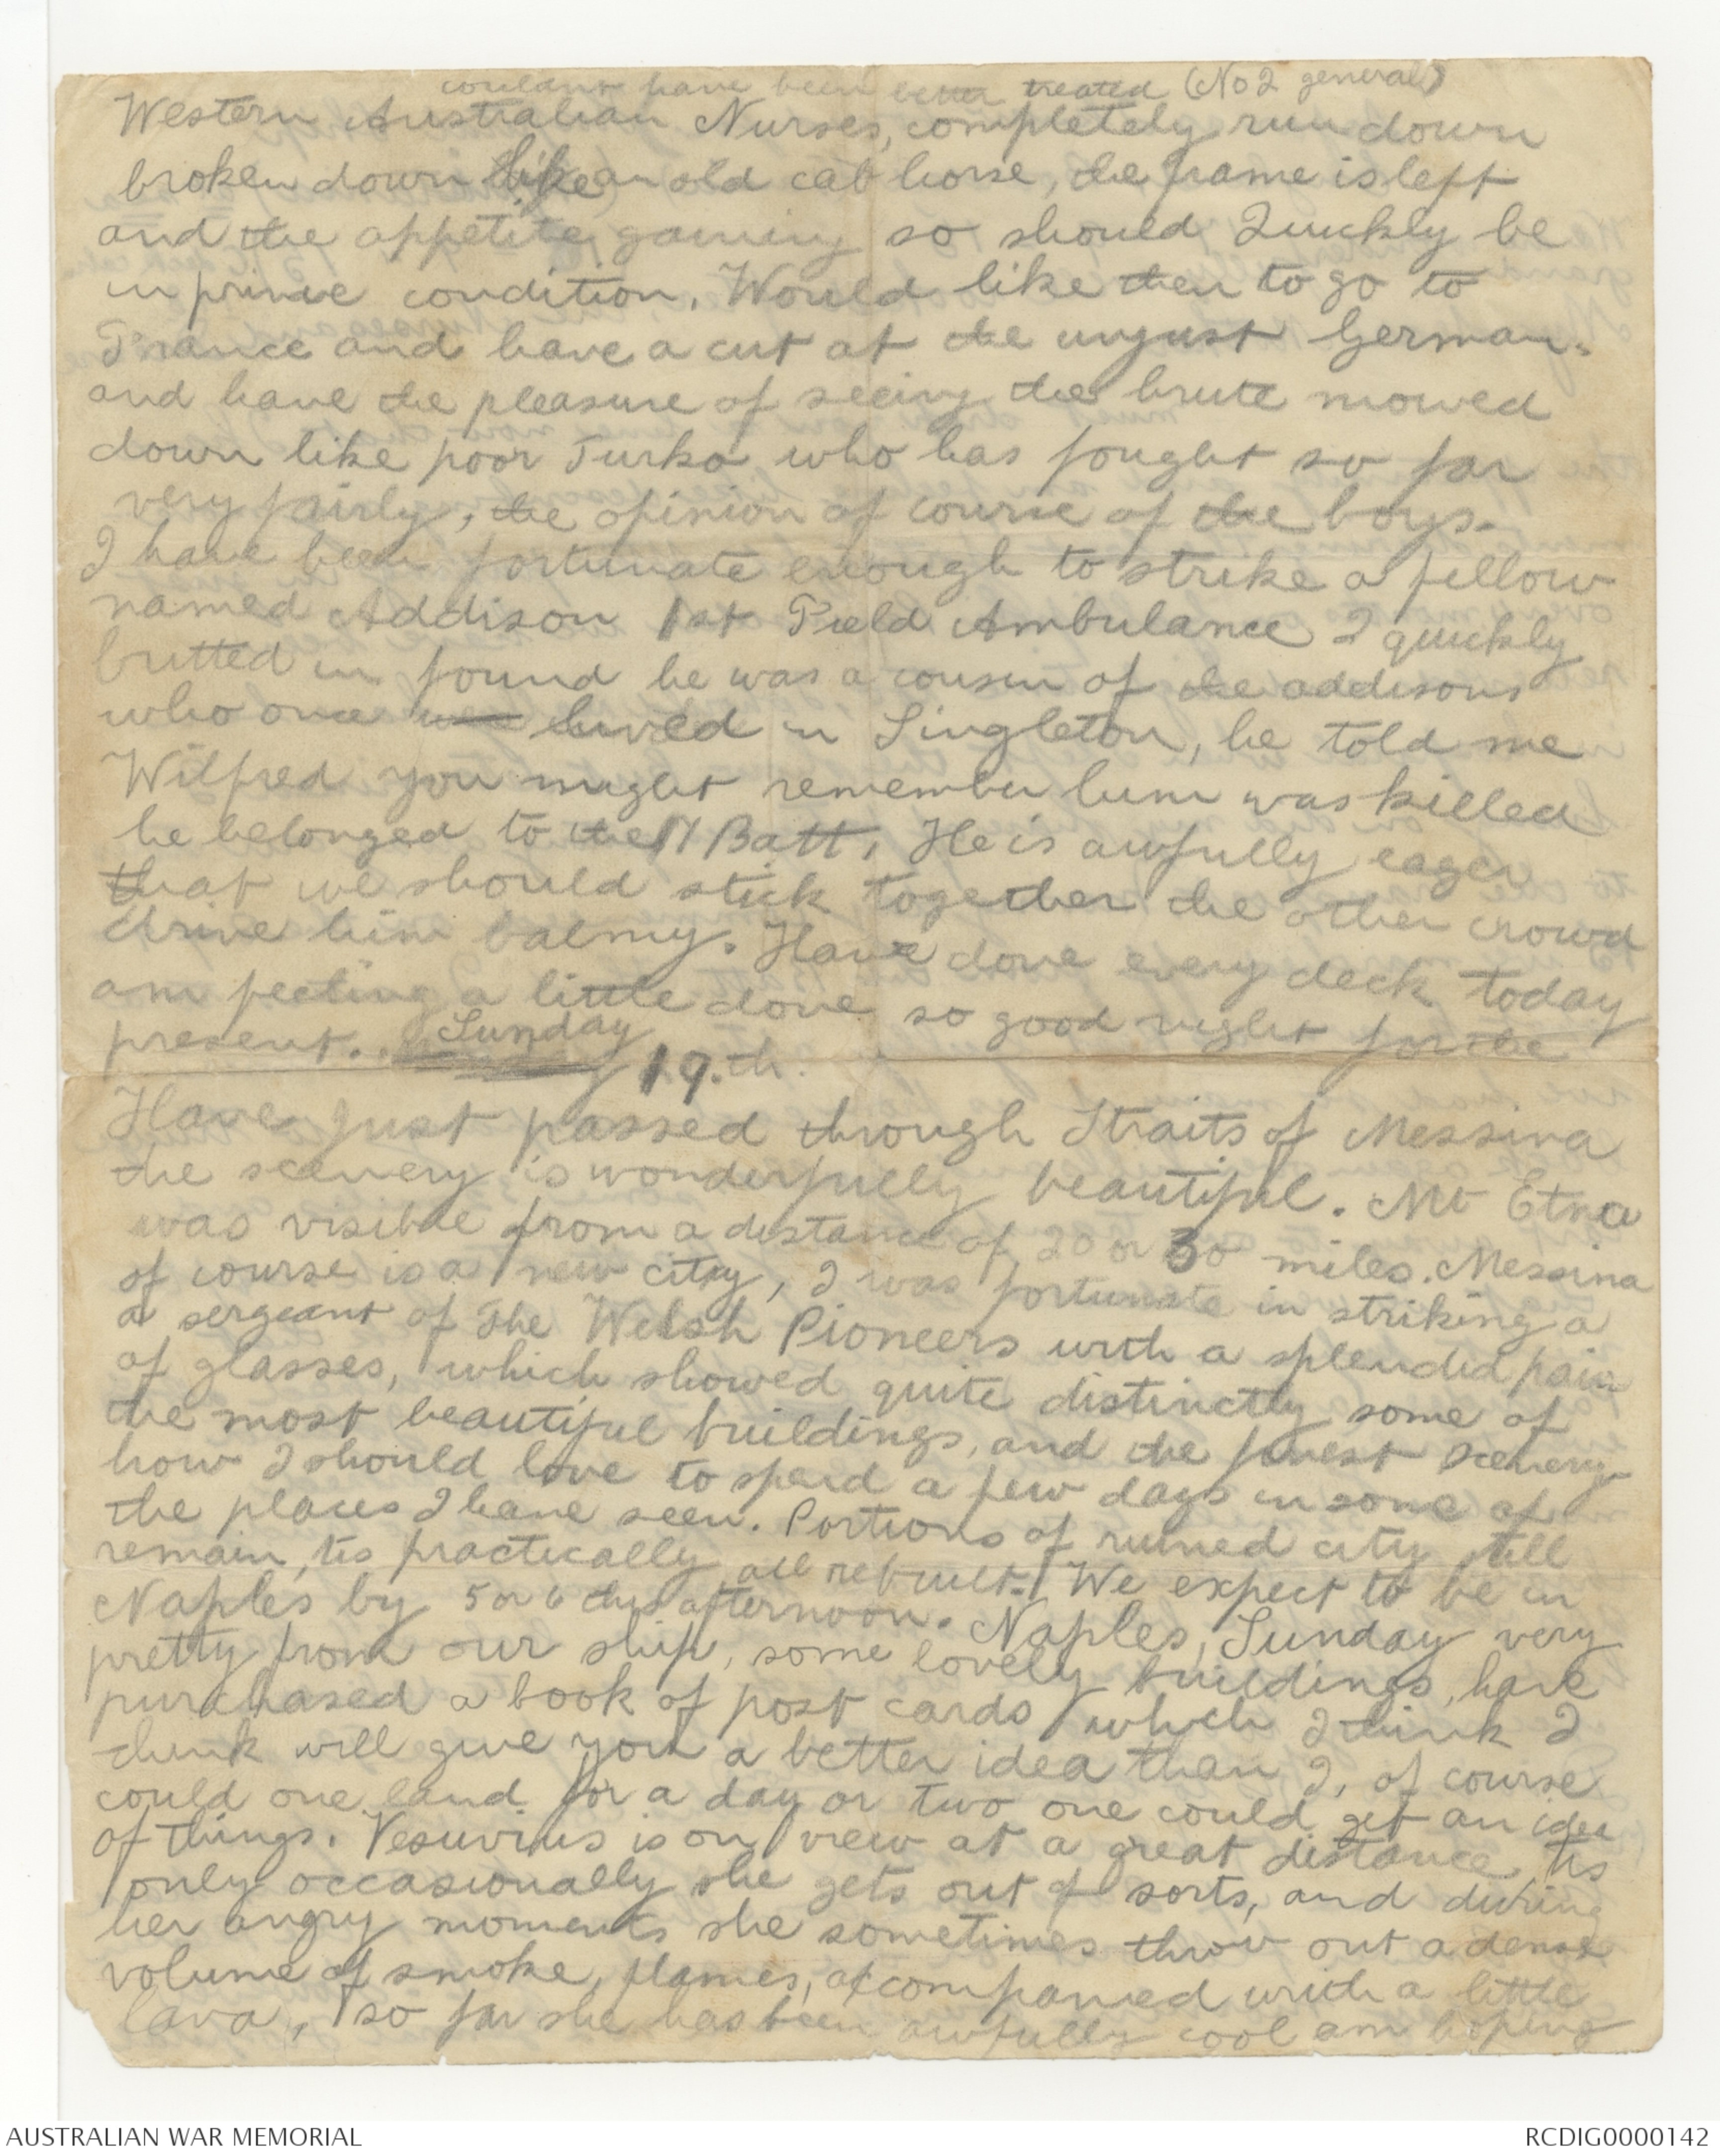 couldnt have been better treated (No 2 general)
Western Australian Nurses, completely run down
broken down like an old cab horse, the frame is left
and the appetite gaining so should quickly be
in prime condition. Would like then to go to
France and have a cut at the unjust German.
and have the pleasure of seeing the brute mowed
down like poor Turko who has fought so far
very fairly, the opinion of course of the boys.
I have been fortunate enough to strike a fellow
named Addison 1st Field Ambulance I quickly
butted in found he was a cousin of the addisons
who once lived in Singleton, he told me
Wilfred you might remember him was killed
he belonged to the Batt. He is awfully eager
that we should stick together the other crowd
drive him balmy. Have done every deck today
am feeling a little done so good night for the
present.. Sunday
19.th.
Have just passed through Straits of Messina
the scenery is wonderfully beautiful. Mt Etna
was visible from a distance of 20 or 30 miles. Messina
of course is a new city, I was fortunate in striking a
a sergeant of The Welsh Pioneers with a splendid pair
of glasses, which showed quite distinctly some of
the most beautiful buildings, and the finest scenery
how I should love to spend a few days in some of
the places I have seen. Portions of ruined city still
remain, tis practically all rebuilt. We expect to be in
Naples by 5 or 6 this afternoon. Naples, Sunday very
pretty from our ship, some lovely buildings, have
purchased a book of post cards which I think I
think will give you a better idea than I, of course
could one land for a day or two one could get an idea
of things. Vesuvius is on view at a great distance, tis
only occasionally she gets out of sorts, and during
her angry moments she sometimes throw out a dense
volume of smoke, flames, accompanied with a little
lava, so far she has been awfully cool am hoping
AUSTRALIAN WAR MEMORIAL
RCDIG0000142